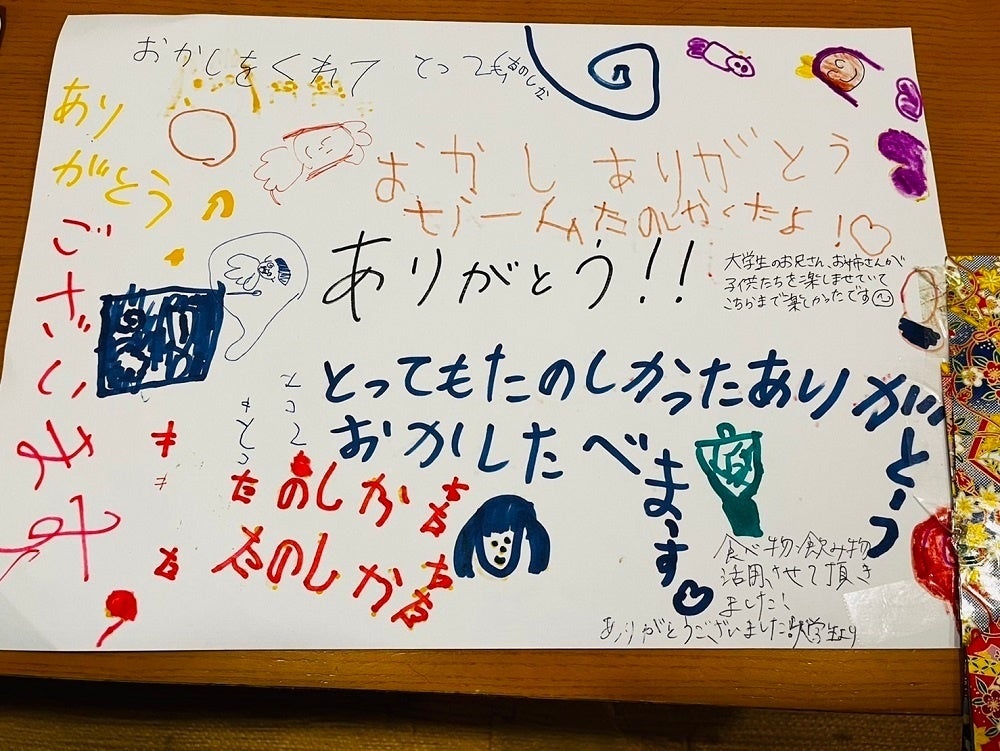 おかしをくれて とっても
たのしか
あり
がとう
ござい
おかし ありがとう
たのしかくたよ!♡
ありがとう!!
大学生のお兄さん、お姉さんが
子供たちを楽しませていて
こちらまで楽しかったです
とってもたのしかったありがとう
おかしたべまーす♡
たのしか
たのしか
食べ物・飲み物
活用させて頂き
ました!
ありがとうございました